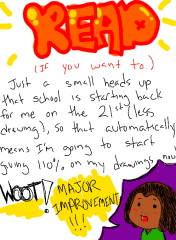 READ
(If you want to.)
Just a small heads up
that school is starting back
for me on the 21st (less
drawing), so that automatically
means I'm going to start
giving 110% on my drawings now
WOOT!
MAJOR
IMPROVEMENT
!!!